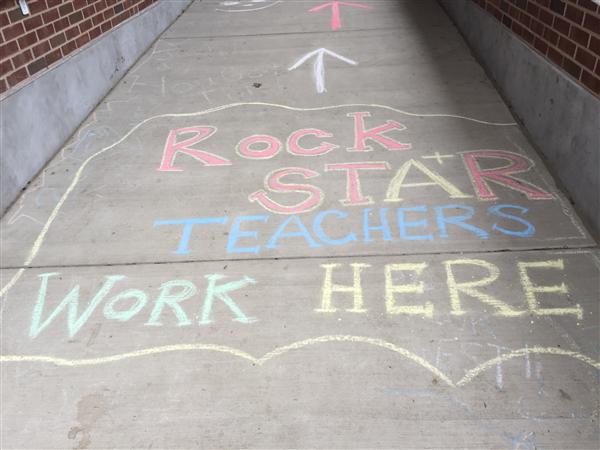 Rock
STAR
TEACHERS
WORK HERE